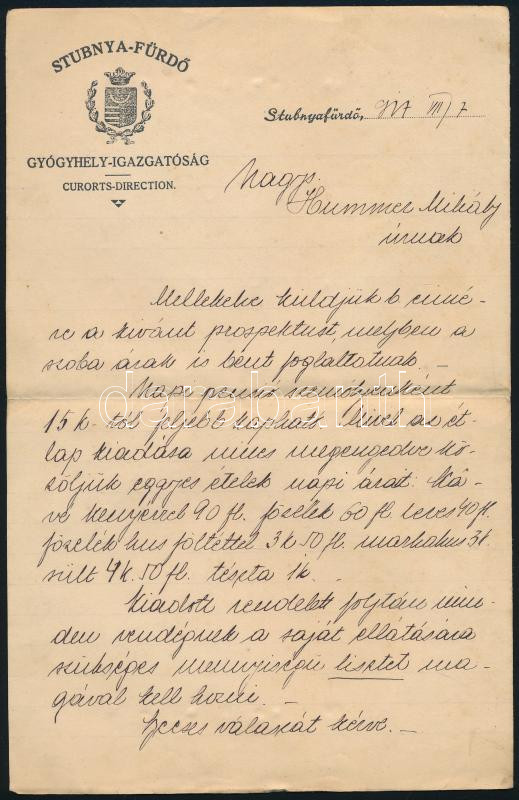 STUBNYA-FÜRDŐ
GYÓGYHELY-IGAZGATÓSÁG
CURORTS-DIRECTION.
Stubnyafürdő, 917 VIII/7
Nagys.
Hummer Mihály
úrnak
Mellékelve küldjük b címé-
re a kívánt prospektust, melyben a
szoba árak is bent foglaltatnak. –
Napi penzió személyenként
15 k-tól feljebb kapható. Mivel az ét-
lap kiadása nincs megengedve kö-
zöljük egyes ételek napi árát: Ká-
vé kenyérrel 90 fl. főzelék 60 fl. leves 40 fl.
főzelék hus föltéttel 3 k 50 fl. marhahus 3 k.
sült 4 k. 50 fl. tészta 1 k. –
Kiadott rendelet folytán min-
den vendégnek a saját ellátására
szükséges mennyiségü lisztet ma-
gával kell hozni. –
Becses válaszát kérve. –
darabanth.com